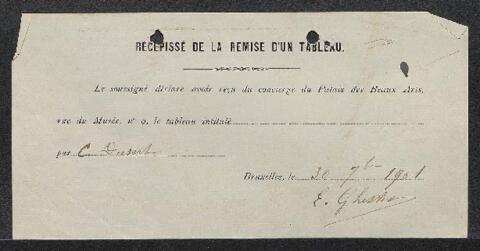 RÉCÉPISSÉ DE LA REMISE D'UN TABLEAU.
Le soussigné déclare avoir reçu du concierge du Palais des Beaux Arts,
rue du Musée, nº 9, le tableau intitulé
par C
Bruxelles, le 30 7bre 1901
E.